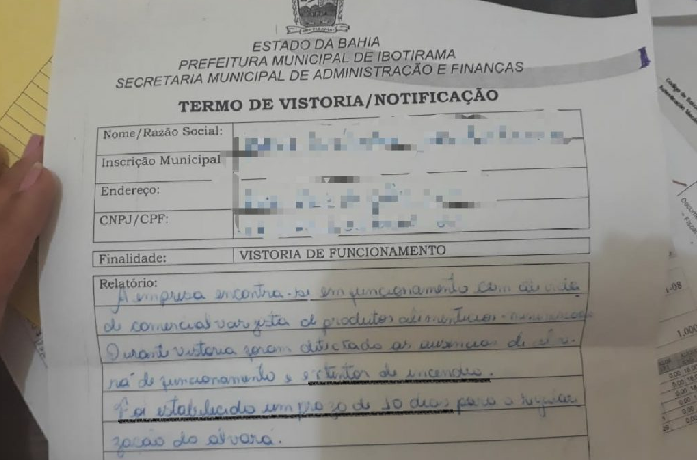 ESTADO DA BAHIA
PREFEITURA MUNICIPAL DE IBOTIRAMA
SECRETARIA MUNICIPAL DE ADMINISTRAÇÃO E FINANÇAS
TERMO DE VISTORIA/NOTIFICAÇÃO
Nome/Razão Social:
Inscrição Municipal
Endereço:
CNPJ/CPF:
Finalidade: VISTORIA DE FUNCIONAMENTO
Relatório:
A empresa encontra-se em funcionamento com atividade
de comercial varejista de produtos alimentícios -
Durante vistoria foram detectado as ausencias de alva-
rá de funcionamento e extintor de incendio.
Foi estabelecido um prazo de 10 dias para a regular
zação do alvará.
1,000